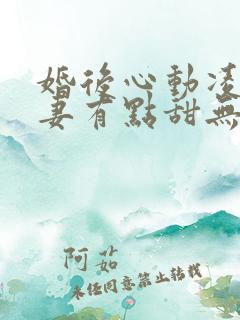 婚後心動凌
妻有點甜無
阿茹
未經同意禁止轉載